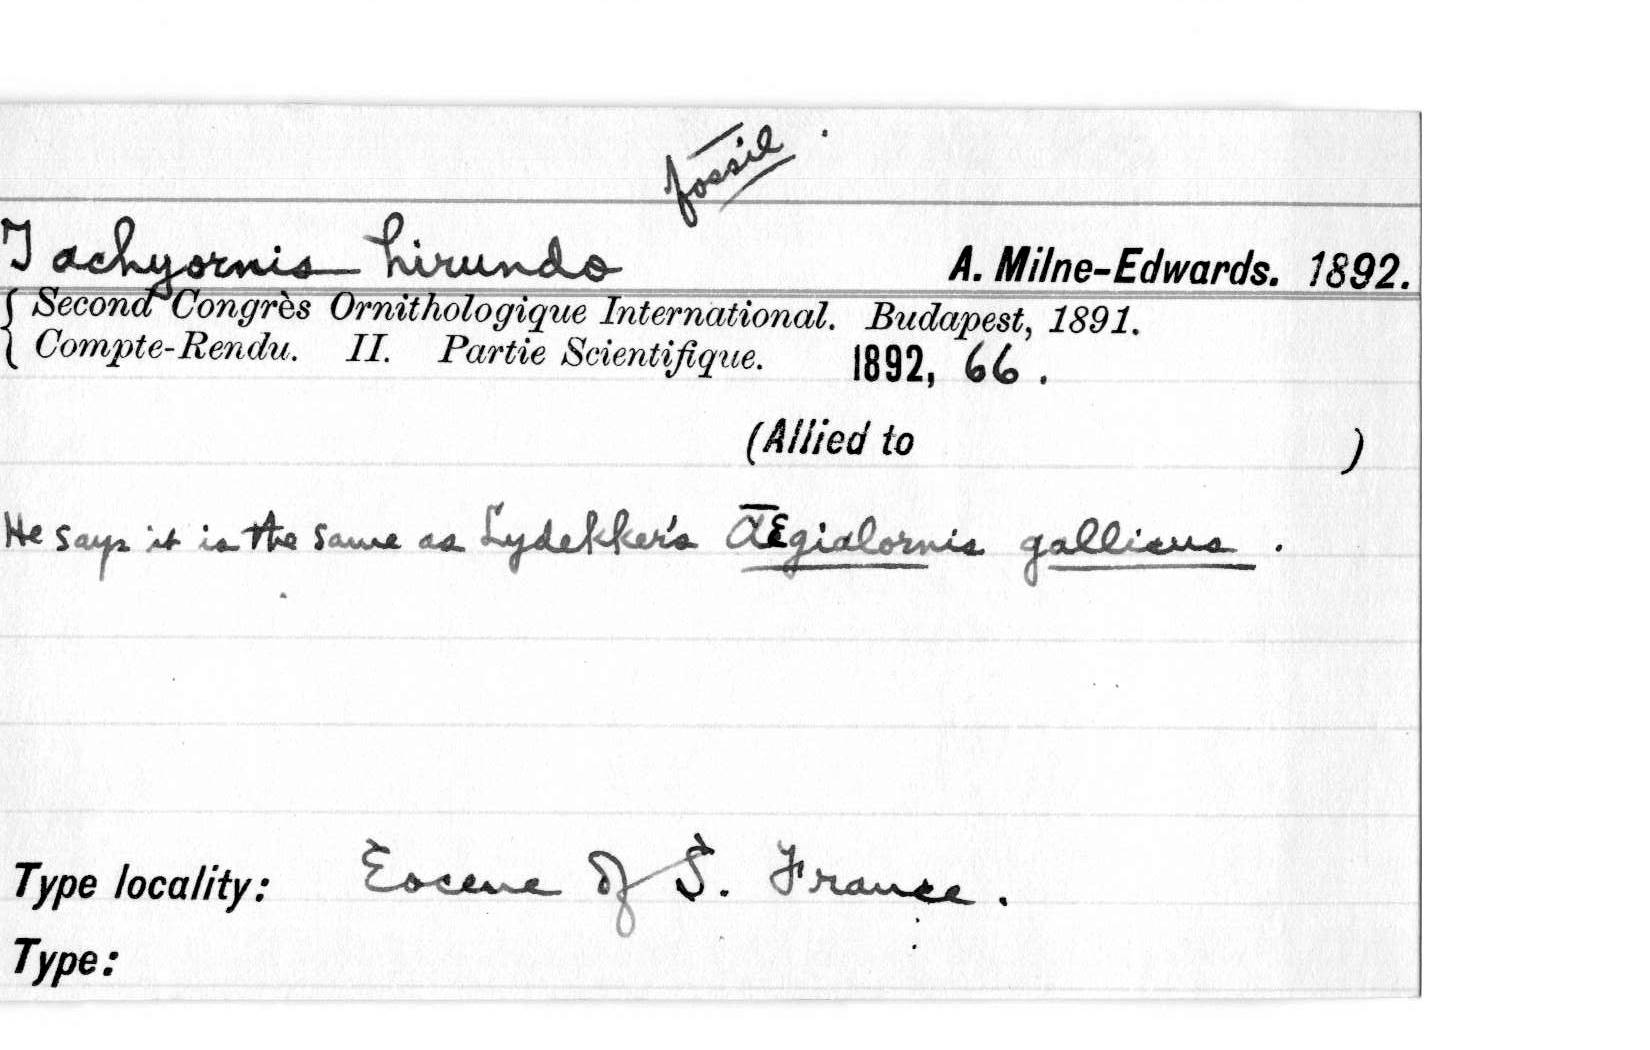 fossil
Tachyornis hirundo A. Milne-Edwards. 1892.
Second Congrès Ornithologique International. Budapest, 1891.
Compte-Rendu. II. Partie Scientifique. 1892, 66.
(Allied to )
He says it is the same as Lydekker's Ægialornis gallicus.
Type locality: Eocene of S. France.
Type: